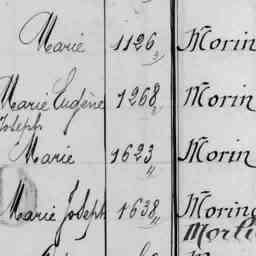 Marie 1126 Morin
Marie Eugène 1268 Morin
Joseph
Marie 1623 Morin
Marie Joseph 1638 Morin